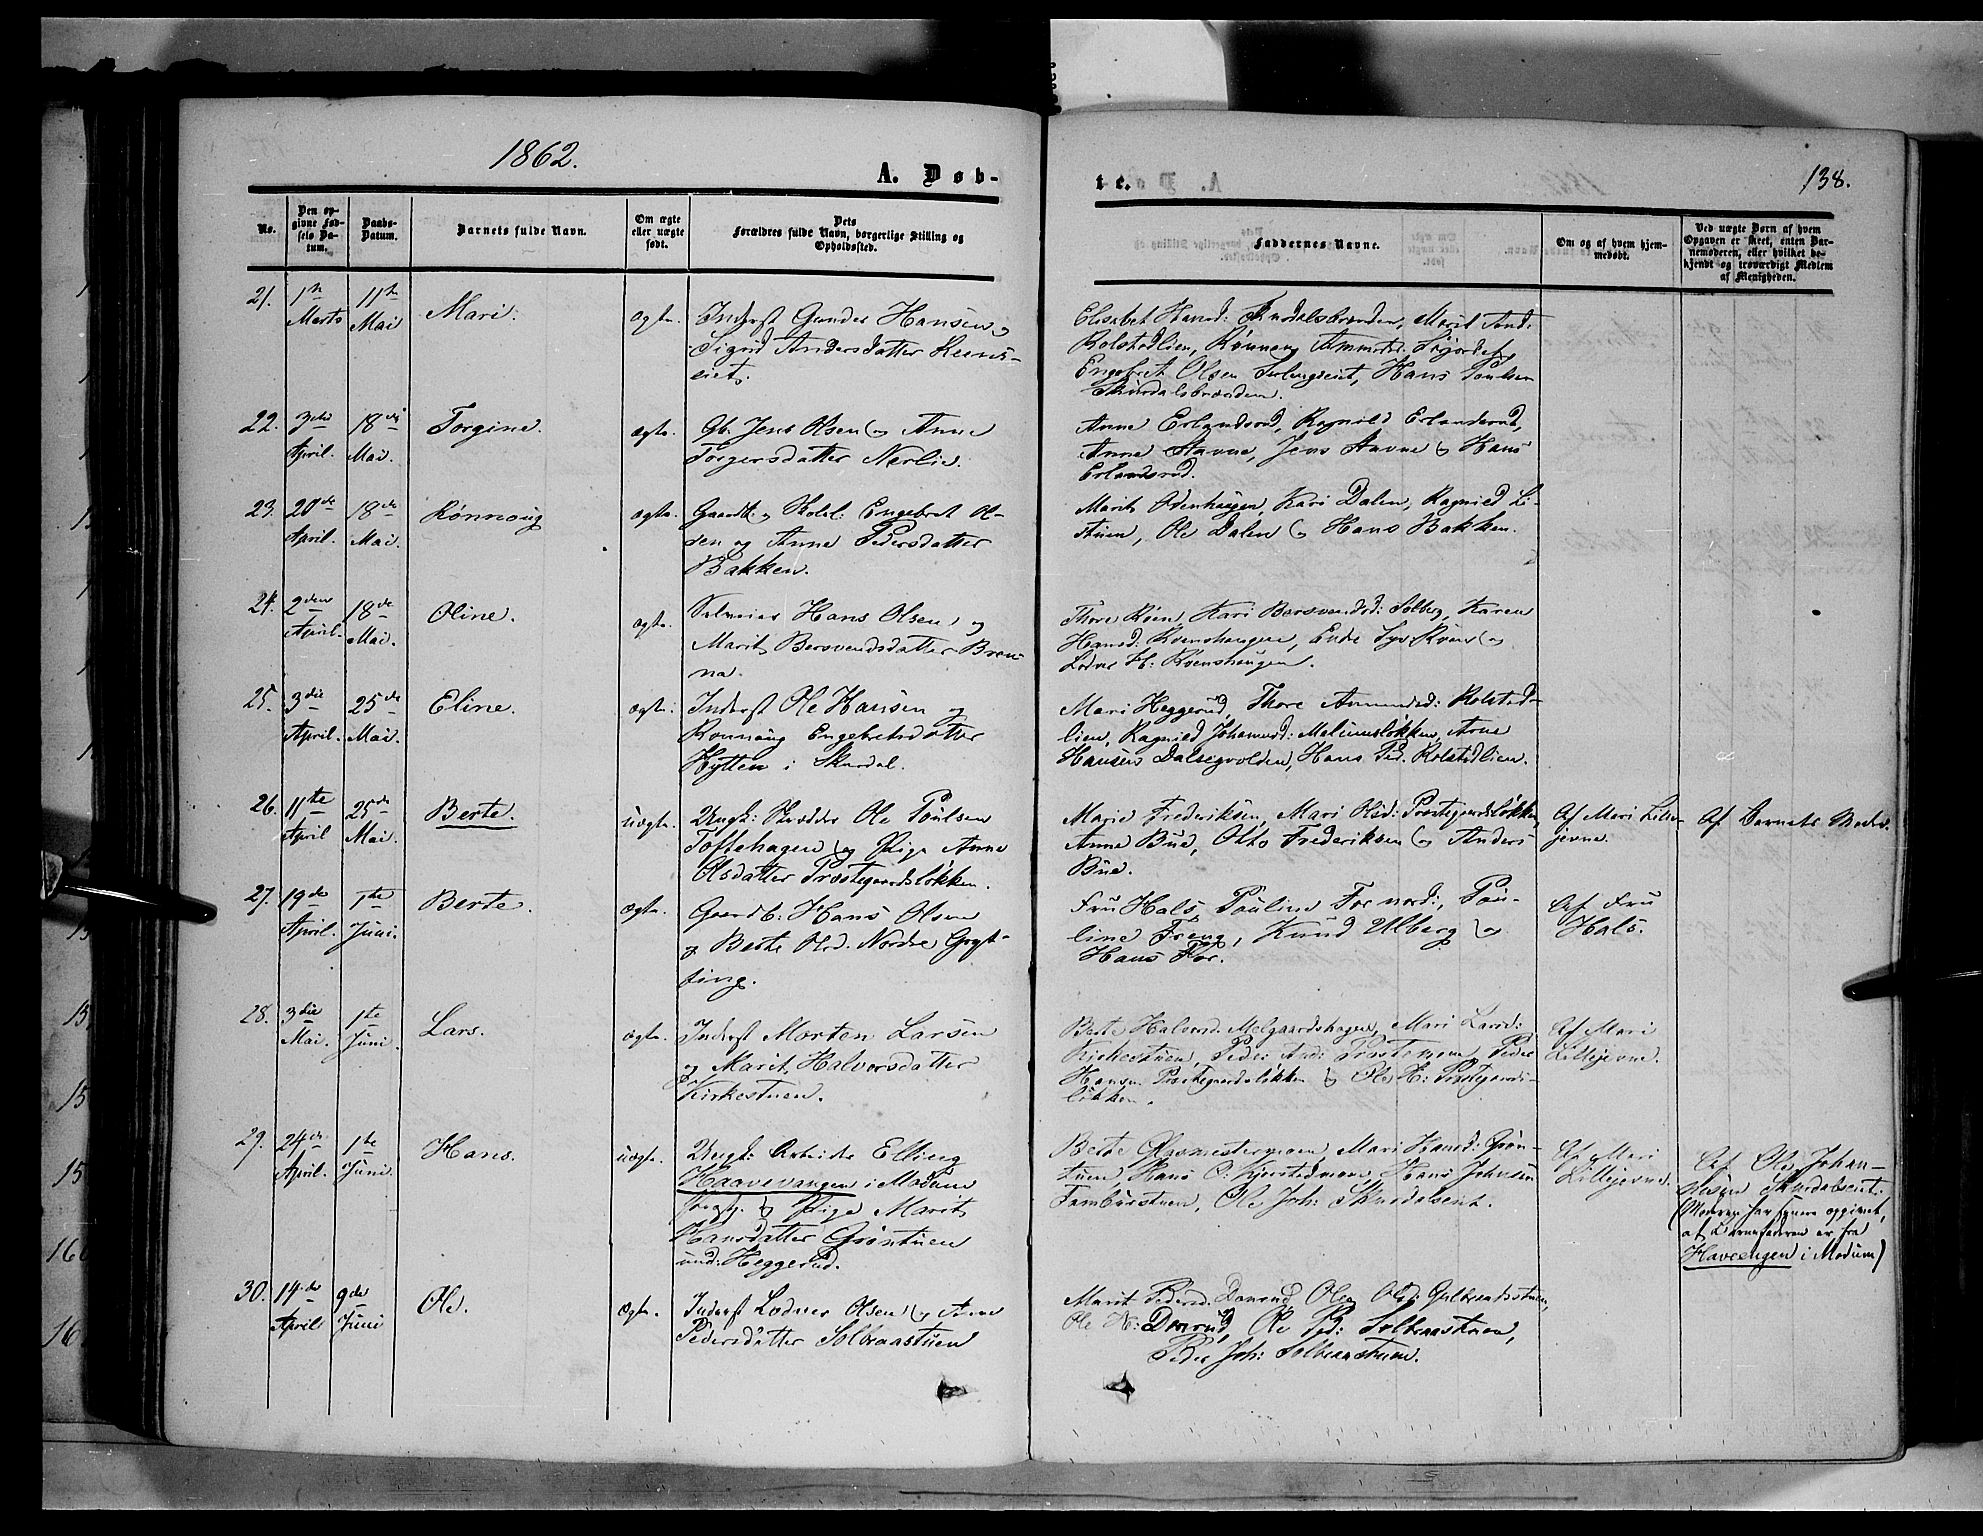 1862.
A. Døb-
te.
138.
No.
Den op-
givne Fød-
sels Da-
tum.
Daabs-
Datum.
Barnets fulde Navn.
Om ægte
eller uægte
født.
Dets
Forældres fulde Navn, borgerlige Stilling og
Opholdssted.
Faddernes Navne.
Om og af hvem hjem-
medøbt.
Ved uægte Børn af hvem
Opgaven er skeet, enten Bar-
nemoderen, eller hvilket be-
kjendt og troværdigt Medlem
af Menigheden.
21. 1ste Marts 11te Mai Mari. ægte.
Inderst Gunder Hansen og
Sigrid Andersdatter
eiet.
Elisabet Hansd: Skurdalsbrænden, Marit And:
Rolstadlien, Rønnaug
Engebret Olsen Hans Poulsen
Skurdalsbrænden.
22. 3die April. 18de Mai. Torgine. ægte.
Gb. Jens Olsen og Anne
Torgersdatter Nerlie.
Anne Erlandsrud, Ragnild Erlandsrud,
Anne Stavne, Jens Stavne og Hans
Erlandsrud.
23. 20de April. 18de Mai. Rønnoug ægte.
Gaardb: og Engebret Ol-
sen og Anne Pedersdatter
Bakken.
Marit Odenhaugen, Kari Dalen, Ragnild Li-
stuen, Ole Dalen og Hans Bakken.
24. 2den April. 18de Mai. Oline. ægte.
Selveier Hans Olsen og
Marit Bersvendsdatter Bræn-
na.
Thore Røen, Kari Bersvendsd: Solberg, Karen
Hansd: Roenshaugen, Røen og
Lodve H: Roenshaugen.
25. 3die April. 25de Mai. Eline. ægte.
Inderst Ole Hansen og
Rønnaug Engebretsdatter
Hytten i Skurdal.
Mari Heggerud, Thore Ammundsd: Rolstad-
lien, Ragnild Johannesd: Melumsløkken, Arne
Hansen Dalsegvolden, Hans Ped. Rolstadlien.
26. 11te April 25de Mai. Berte. uægte.
Ungk: Skrædder Ole Poulsen
Toftehagen og Pige Anne
Olsdatter Præstegaardsløkken.
Marie Frederiksen, Mari Olsd: Præstegaardsløkken
Anne Bue, Otto Frederiksen og Anders
Bue.
Af Mari Lille-
jevne.
Af Barnets Moder.
27. 19de April. 1ste Juni. Berte. ægte.
Gaardb: Hans Olsen
og Berte Olsd. Nordre Gryt-
ting.
Fru Hals, Pauline For nord:, Pau-
line Freng, Knud Ulberg og
Hans For.
Af Fru
Hals.
28. 3die Mai. 1ste Juni. Lars. ægte.
Inderst Morten Larsen
og Marit Halvorsdatter
Kirkestuen.
Berte Halvorsd. Melgaardshagen, Mari Larsd:
Kirkestuen, Peder And: Peder
Hansen Præstegaardsløkken og Ole H: Præstegaards-
løkken.
Af Mari
Lillejevne.
29. 24de April. 1ste Juni. Hans. uægte.
Ungk: Arbeider Elling
Haavevangen i Modum
Præstgj. og Pige Marit
Hansdatter Grønstuen
und: Heggerud.
Berte Glasmestermoen Mari Hansd: Grøn-
stuen, Hans O: Kjorstadmoen, Hans Johnsen
Tamburstuen, Ole Joh: Skurdalseiet.
Af Mari
Lillejevne.
Af Ole Johan-
nesen Skurdalseiet.
(Moren har senere opgivet,
at Barnefaderen er fra
Haveengen i Modum)
30. 14de April 9de Juni Ole. ægte.
Inderst Lodver Olsen og Anne
Pedersdatter Solbraastuen
Marit Pedersd. Donrud Olea Olsd: Gulbrandsstuen,
Ole N: Donrud, Ole Ped: Solbraastuen,
Peder Joh: Solbraastuen.